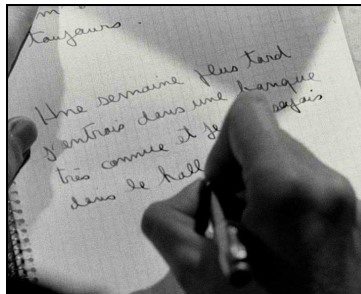 m'
toujours.
Une semaine plus tard
j'entrais dans une banque
très connue et je
dans le hall